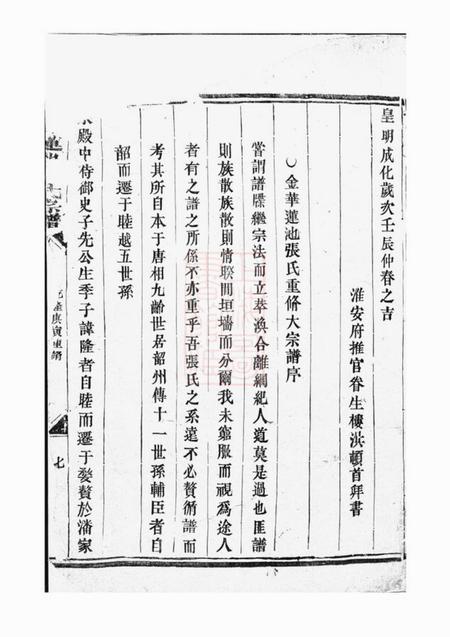 皇明成化歲次壬辰仲春之吉
淮安府推官眷生樓洪頓首拜書
○金華蓮池張氏重修大宗譜序
嘗謂譜牒繼宗法而立萃渙合離綱紀人道莫是過也匪譜
則族散族散則情睽間垣墻而分爾我未窮服而視為途人
者有之譜之所係不亦重乎吾張氏之系遠不必贅循譜而
考其所自本于唐相九齡世居韶州傳十一世孫輔臣者自
韶而遷于睦越五世孫
殿中侍御史子先公生季子諱隆者自睦而遷于婺贅於潘家
宗譜
庚寅重修
七